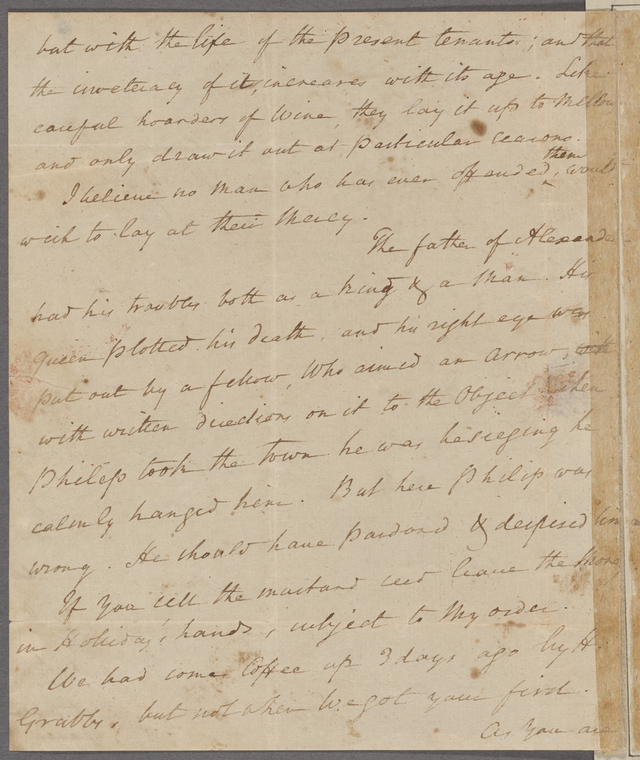 but with the life of the present tenants; and that
the inveteracy of it, increases with its age. Like
careful hoarders of Wine, they lay it up to Mellow
and only draw it out at particular seasons.
I believe no man who has ever offended them, would
wish to lay at their Mercy.
The father of Alexander
had his troubles both as a King & a Man. His
queen plotted his death, and his right eye was
put out by a fellow, Who aimed an Arrow,
with written directions on it to the Object. When
Philip took the town he was besieging he
calmly hanged him. But here Philip was
wrong. He should have pardoned & despised him
If you sell the mustard seed leave the Money
in Holiday's hands, subject to My order.
We had some Coffee up 3 days ago by H.
Grubbs, but not when We got your first.
As You are